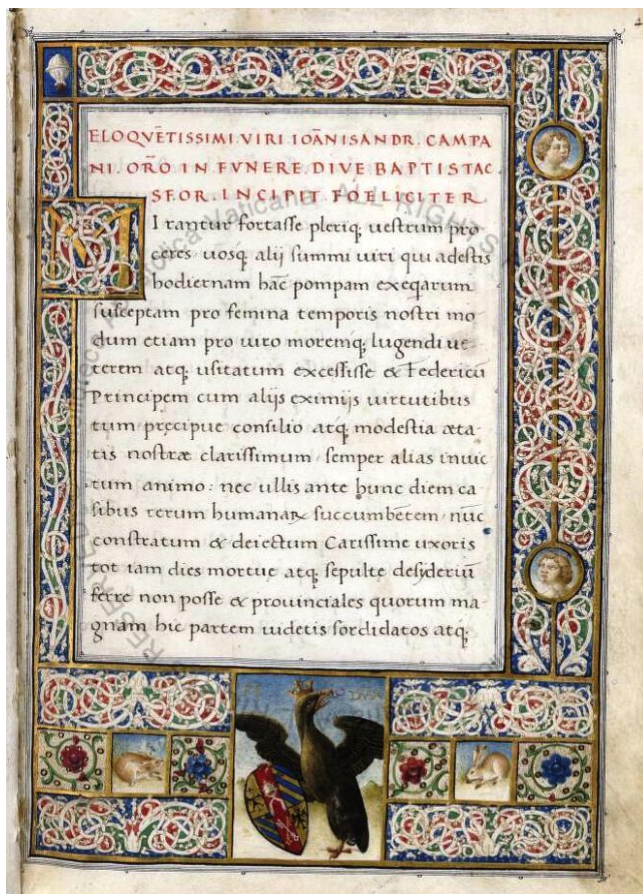 ELOQVĒTISSIMI. VIRI. IOĀNISANDR. CAMPA
NI. OR̄O IN FVNERE. DIVE BAPTISTAC
SFOR. INCIPIT FOELICITER
MIrantur fortasse pleriq; uestrum pro
ceres uosq; alij summi uiri qui adestis
hodiernam hāc pompam exeq̄arum
susceptam pro femina temporis nostri mo
dum etiam pro uiro moremq; lugendi ue
terem atq; usitatum excessisse & Federicū
Principem cum alijs eximijs uirtutibus
tum pręcipue consilio atq; modestia æta
tis nostræ clarissimum semper alias inuic
tum animo: nec ullis ante hunc diem ca
sibus rerum humanaꝝ succumbētem nūc
constratum & deiectum Carissime uxoris
tot iam dies mortuę atq; sepulte desyderiū
ferre non posse & prouinciales quorum ma
gnam hic partem uidetis sordidatos atq;